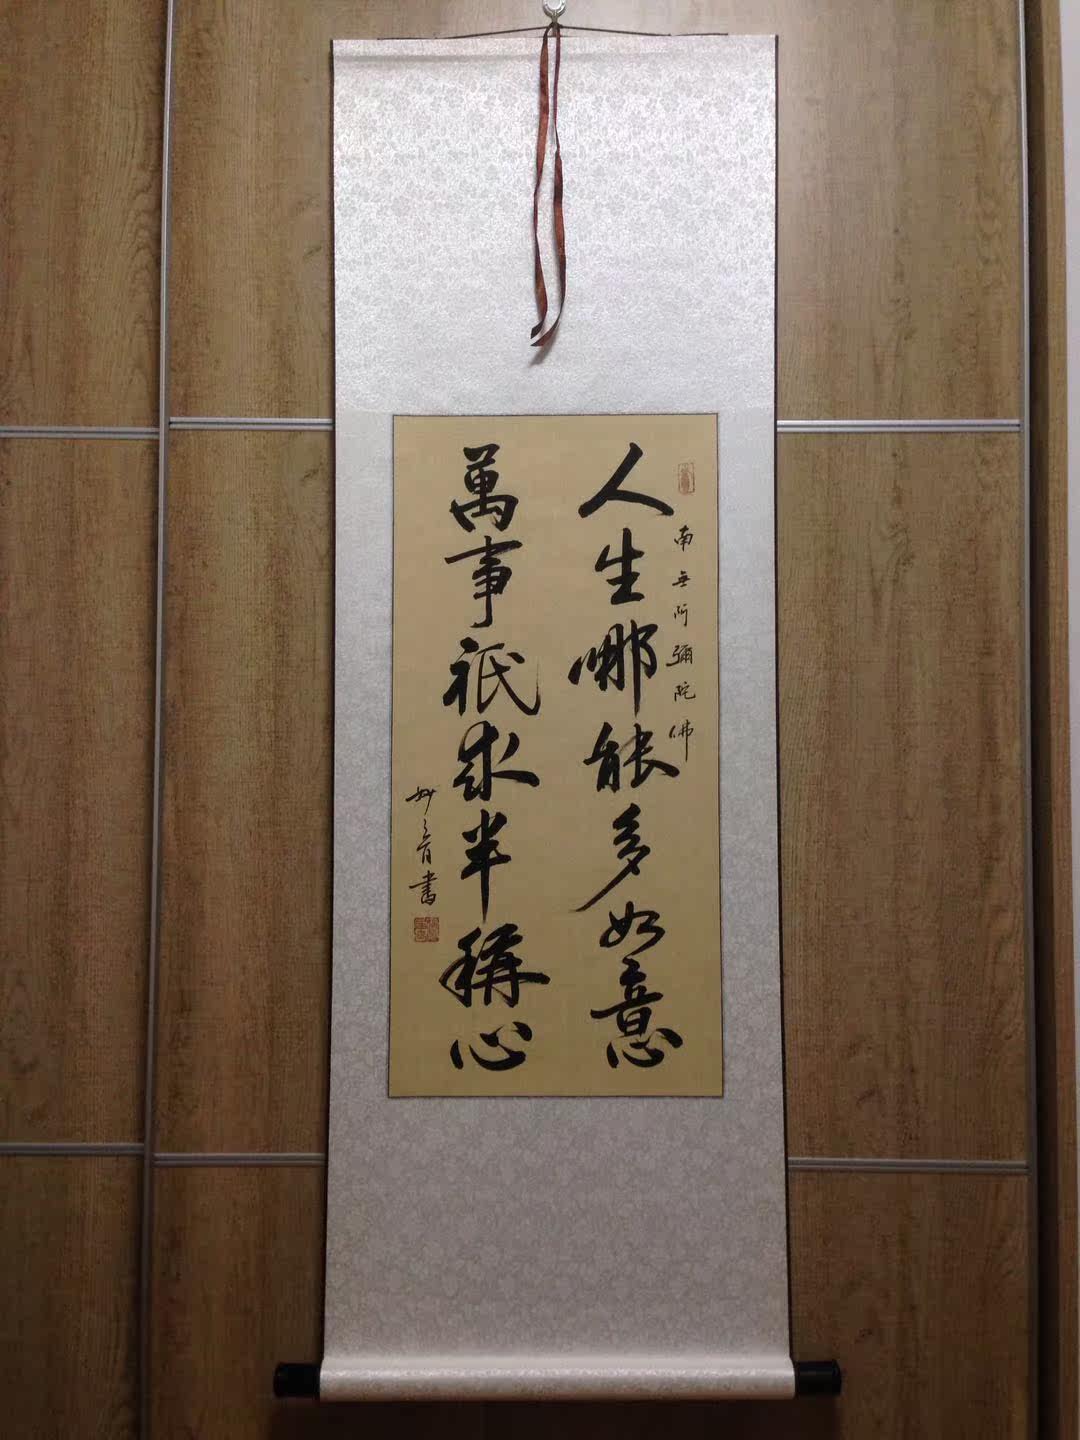 南無阿彌陀佛
人生哪能多如意
萬事祇求半稱心
妙音書